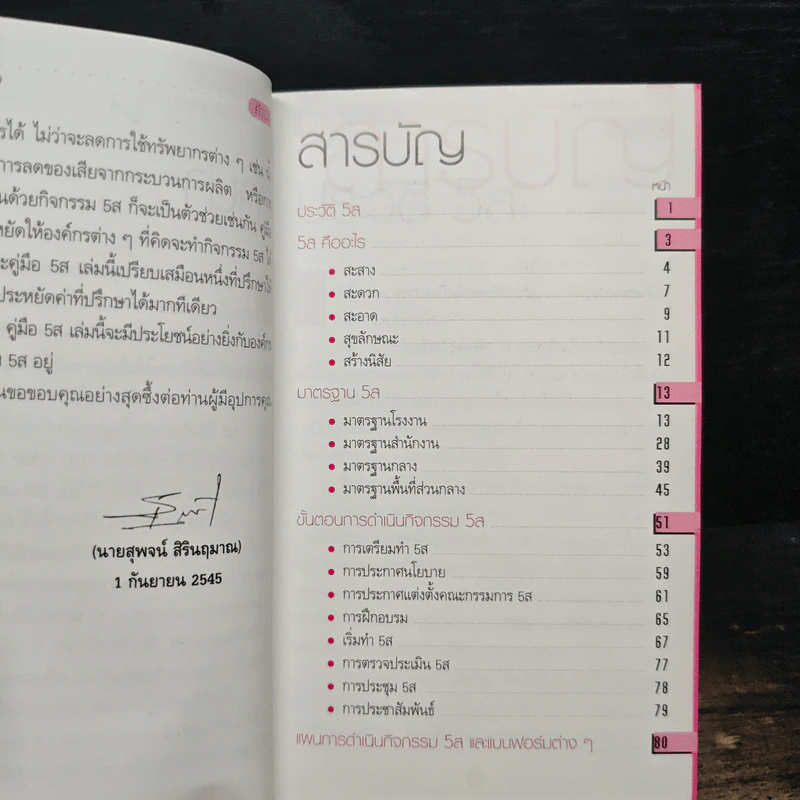 รได้ ไม่ว่าจะลดการใช้ทรัพยากรต่าง ๆ เช่น
การลดของเสียจากกระบวนการผลิต
นด้วยกิจกรรม 5ส ก็จะเป็นตัวช่วยเช่นกัน คู่มือ
หยัดให้องค์กรต่าง ๆ ที่คิดจะทำกิจกรรม 5ส
ะคู่มือ 5ส เล่มนี้เปรียบเสมือนหนึ่งที่ปรึกษา
ประหยัดค่าที่ปรึกษาได้มากทีเดียว
คู่มือ 5ส เล่มนี้จะมีประโยชน์อย่างยิ่งกับองค์กร
5ส อยู่
นขอขอบคุณอย่างสุดซึ้งต่อท่านผู้มีอุปการคุณ
(นายสุพจน์ สิรินฤมาณ)
1 กันยายน 2545
สารบัญ
หน้า
ประวัติ 5ส 1
5ส คืออะไร 3
• สะสาง 4
• สะดวก 7
• สะอาด 9
• สุขลักษณะ 11
• สร้างนิสัย 12
มาตรฐาน 5ส 13
• มาตรฐานโรงงาน 13
• มาตรฐานสำนักงาน 28
• มาตรฐานกลาง 39
• มาตรฐานพื้นที่ส่วนกลาง 45
ขั้นตอนการดำเนินกิจกรรม 5ส 51
• การเตรียมทำ 5ส 53
• การประกาศนโยบาย 59
• การประกาศแต่งตั้งคณะกรรมการ 5ส 61
• การฝึกอบรม 65
• เริ่มทำ 5ส 67
• การตรวจประเมิน 5ส 77
• การประชุม 5ส 78
• การประชาสัมพันธ์ 79
แผนการดำเนินกิจกรรม 5ส และแบบฟอร์มต่าง ๆ 80